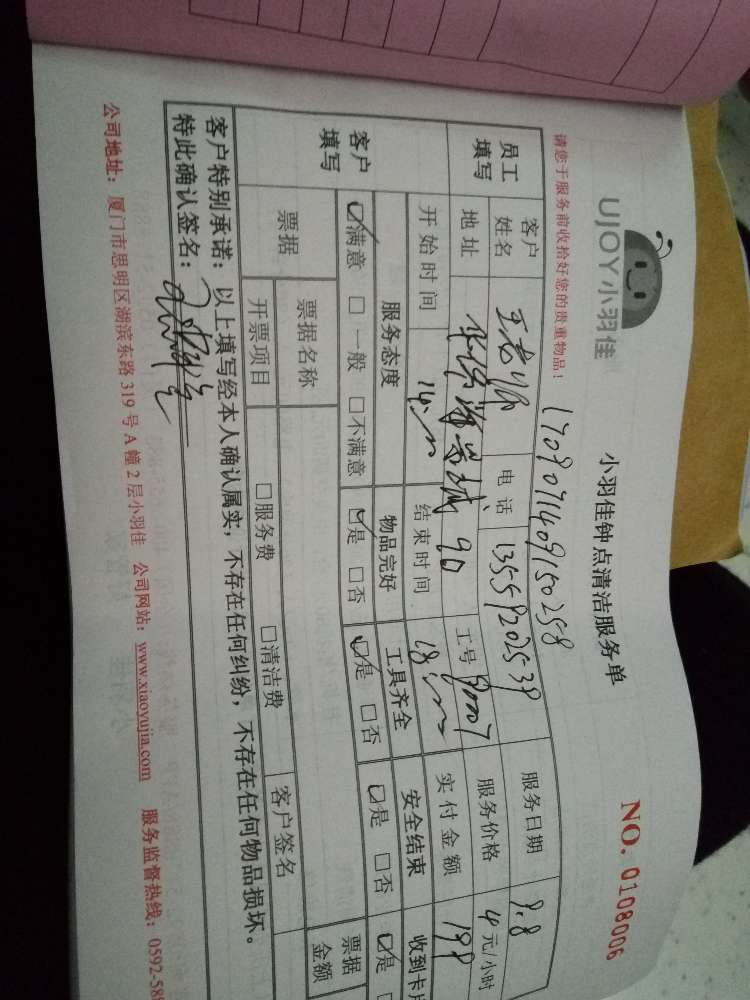 UJOY小羽佳
小羽佳钟点清洁服务单
NO. 0108006
请您于服务前收拾好您的贵重物品！
1709071409150258
员工填写
客户姓名 王老师 电话 13559202539 服务日期 9.8
地址 90 工号 90007 服务价格 元/小时
开始时间 14: 结束时间 18: 实付金额 199
客户填写
服务态度 物品完好 工具齐全 安全结束 收到卡
☑满意 □一般 □不满意 ☑是 □否 ☑是 □否 ☑是 □否 ☑是
票据 票据名称 客户签名 票据金额
开票项目 □服务费 □清洁费
客户特别承诺：以上填写经本人确认属实，不存在任何纠纷，不存在任何物品损坏。
特此确认签名：
公司地址：厦门市思明区湖滨东路 319 号 A 幢 2 层小羽佳 公司网站：www.xiaoyujia.com 服务监督热线：0592-58